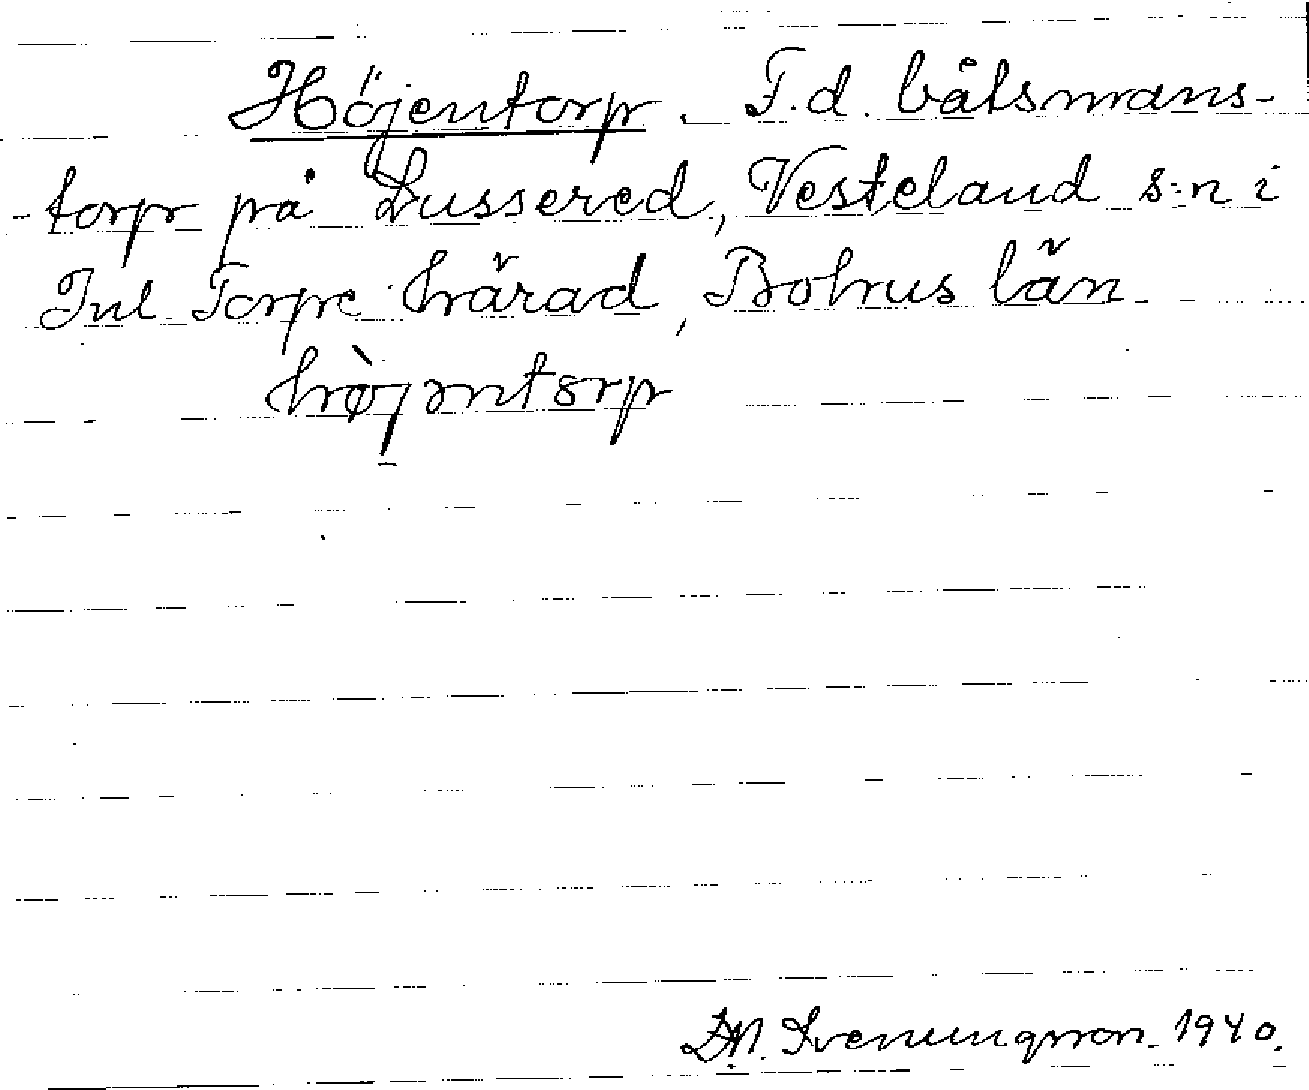 Höjentorp. F.d. båtsmans-
-torp på Lussered, Vesteland s:n i
Inl. Torpe härad, Bohus län
D.N. Sveningsson. 1940.